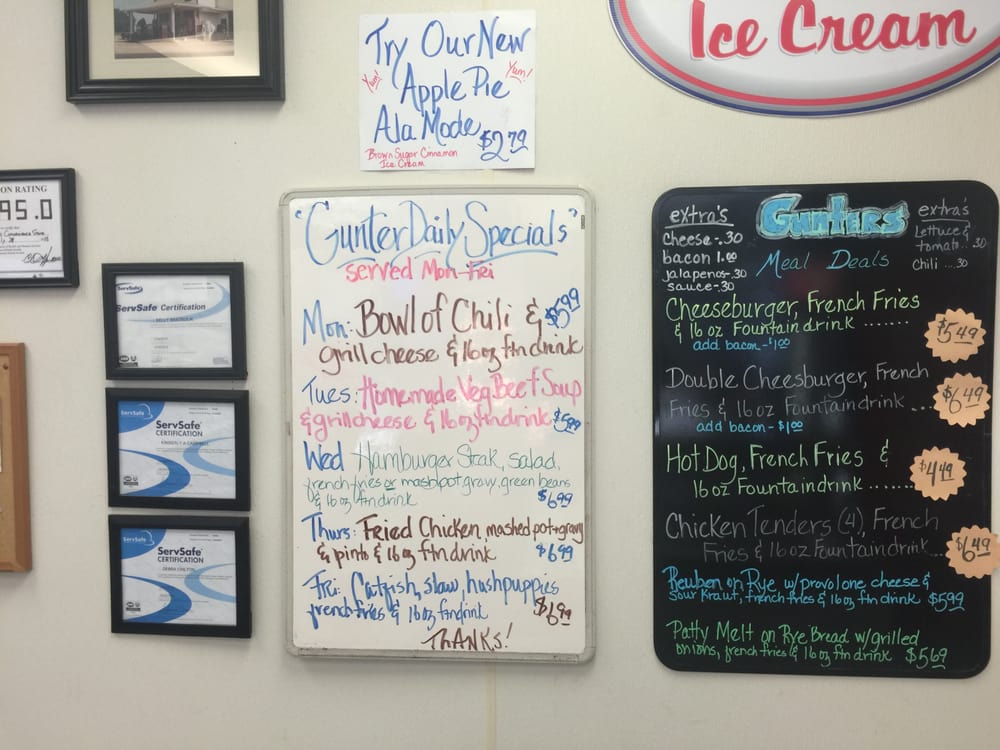 Ice Cream
Try Our New
Yum!
Yum!
Apple Pie
Ala Mode
$2.79
Brown Sugar Cinnamon
Ice Cream
ON RATING
95.0
ServSafe
ServSafe® Certification
ServSafe
ServSafe®
CERTIFICATION
ServSafe
ServSafe®
CERTIFICATION
"Gunter Daily Specials"
served Mon-Fri
Mon: Bowl of Chili & $5.99
grill cheese & 16oz ftn drink
Tues: Homemade Veg Beef Soup
& grill cheese & 16oz ftn drink $5.99
Wed Hamburger Steak, salad,
french fries or mash pot gravy, green beans
& 16oz ftn drink $6.99
Thurs: Fried Chicken, mashed pot + gravy
& pinto & 16oz ftn drink $6.99
Fri: Catfish, slaw, hushpuppies
french fries & 16oz ftn drink $6.99
THANKS!
extra's
cheese-.30
bacon 1.00
jalapenos-.30
sauce-.30
GUNTERS
Meal Deals
extra's
Lettuce &
tomato..30
chili ...30
Cheeseburger, French Fries
& 16 oz Fountain drink ....... $5.49
add bacon-$1.00
Double Cheesburger, French
Fries & 16 oz Fountain drink .... $6.49
add bacon-$1.00
Hot Dog, French Fries &
16 oz Fountain drink ........ $4.49
Chicken Tenders (4), French
Fries & 16 oz Fountain drink... $6.49
Reuben on Rye w/provolone cheese &
sour kraut, french fries & 16oz ftn drink $5.99
Patty Melt on Rye Bread w/grilled
onions, french fries & 16 oz ftn drink $5.69